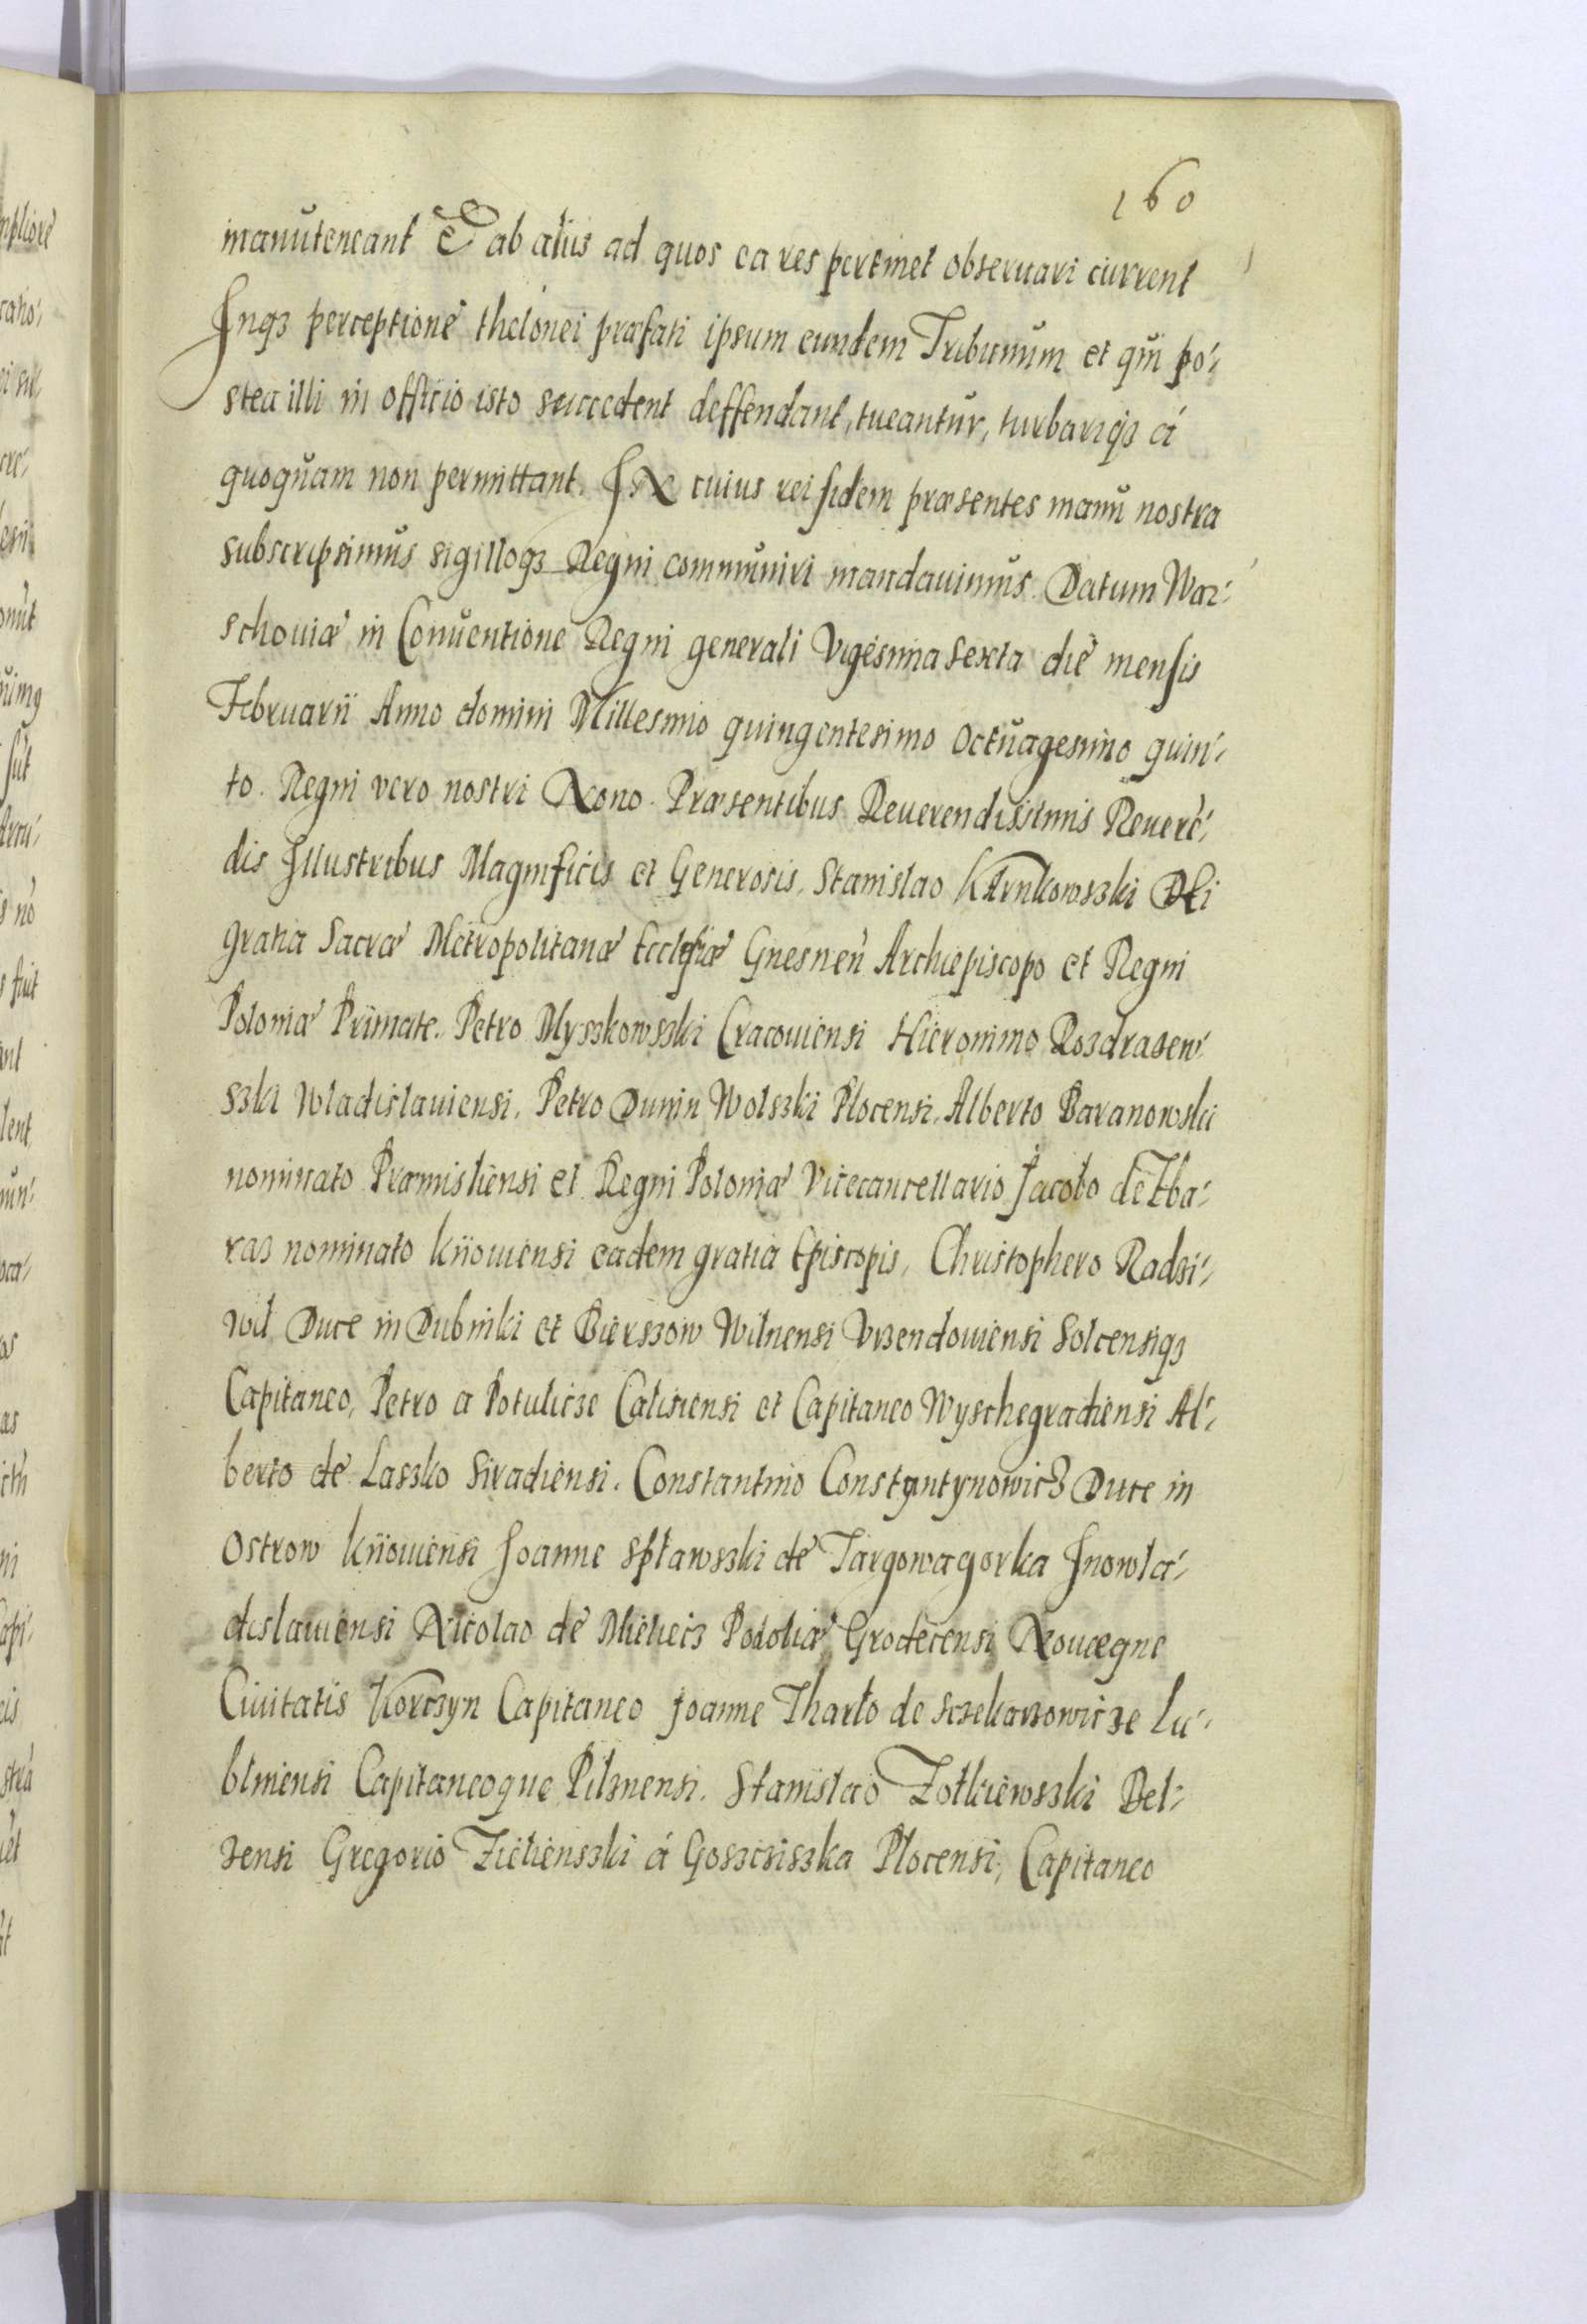 160
manutencant Et ab aliis ad quos ea res pertinet obseruari current
Inqз perceptione thelonei præfati ipsum eundem Tribunum et qui po-
stea illi in officio isto succedent deffendant, tueantur, turbariqз á
quoquam non permittant. IN cuius rei fidem præsentes manu nostra
subscripsimus sigilloqз Regni communiri mandauimus. Datum War-
schouiæ in Conuentione Regni generali Vigesima sexta die mensis
Februarii Anno domini Millesimo quingentesimo Octuagesimo quin-
to. Regni vero nostri Nono. Præsentibus Reuerendissimis Reuerē-
dis Illustribus Magnificis et Generosis, Stanislao Karnkowski Dei
gratia Sacræ Metropolitanæ Ecclesiæ Gnesnen Archiepiscopo et Regni
Poloniæ Primate. Petro Myszkowszki Cracouiensi Hieronimo Rozdrazew-
szki Wladislauiensi, Petro Dunin Wolszki Plocensi, Alberto Baranowski
nominato Præmisliensi et Regni Poloniæ Vicecancellario Jacobo de Zba-
raз nominato Kiiouiensi eadem gratia Episcopis, Christophero Radzi-
wil Duce in Dubinki et Bierszow Wilnensi Vrzendouiensi Solcensiqз
Capitaneo, Petro a Potulicze Calisiensi et Capitaneo Wyschegradiensi Al-
berto de Laszko Siradiensi. Constantino Constantynowicz Duce in
Ostrow Kiiouiensi Joanne Spławszki de Targowagorka Inowla-
dislauiensi Nicolao de Mielecz Podoliæ Grodecensi Nouæque
Ciuitatis Korczyn Capitaneo Joanne Tharło de Sczekarzowicze Lu-
blinensi Capitaneoque Pilznensi. Stanislao Zołkiewszki Bel-
zensi Gregorio Zielienszki á Goszcziszka Plocensi, Capitaneo